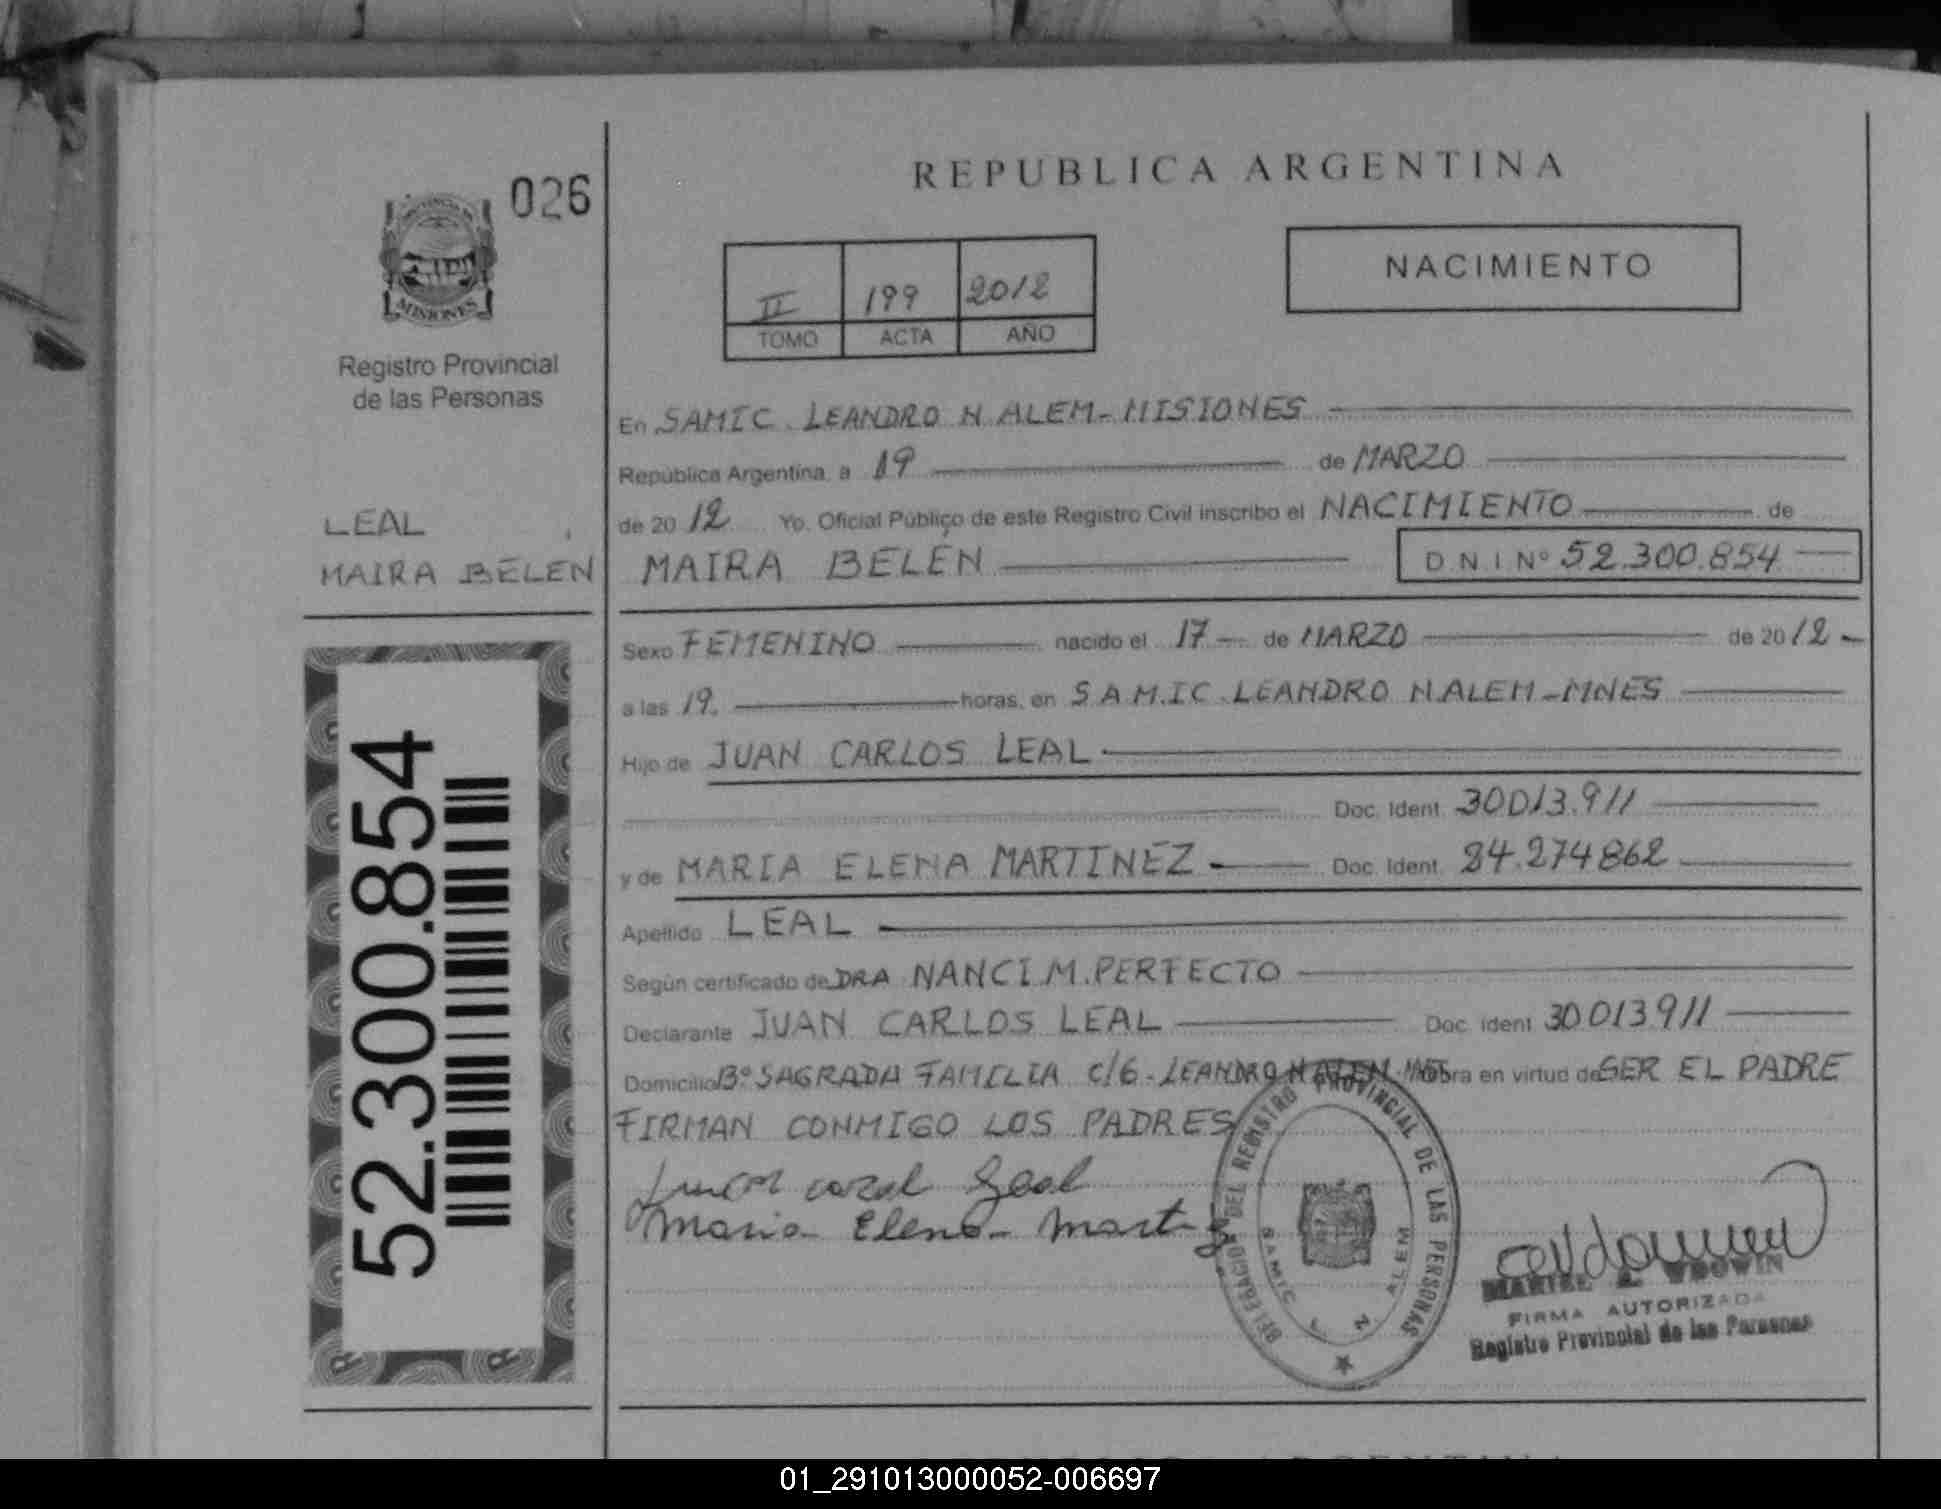 026
MISIONES
Registro Provincial
de las Personas
LEAL
MAIRA BELEN
52.300.854
REPUBLICA ARGENTINA
II 199 2012
TOMO ACTA AÑO
NACIMIENTO
En SAMIC LEANDRO N ALEM-MISIONES
República Argentina, a 19 de MARZO
de 2012 Yo, Oficial Público de este Registro Civil inscribo el NACIMIENTO de
MAIRA BELEN D.N.I Nº 52.300.854
Sexo FEMENINO nacido el 17 de MARZO de 2012
a las 19. horas, en S A M.IC LEANDRO N.ALEM-MNES
Hijo de JUAN CARLOS LEAL
Doc. Ident. 30013.911
y de MARIA ELENA MARTINEZ Doc. Ident. 24.274862
Apellido LEAL
Según certificado de DRA NANCI M. PERFECTO
Declarante JUAN CARLOS LEAL Doc. Ident 30013911
Domicilio Bº SAGRADA FAMILIA C/6-LEANDRO N ALEM obra en virtud de SER EL PADRE
FIRMAN CONMIGO LOS PADRES
Leal
Maria Elena
DELEGACION DEL REGISTRO PROVINCIAL DE LAS PERSONAS
SAMIC L N ALEM
WDOWIN
FIRMA AUTORIZADA
Registro Provincial de las Personas
01_291013000052-006697